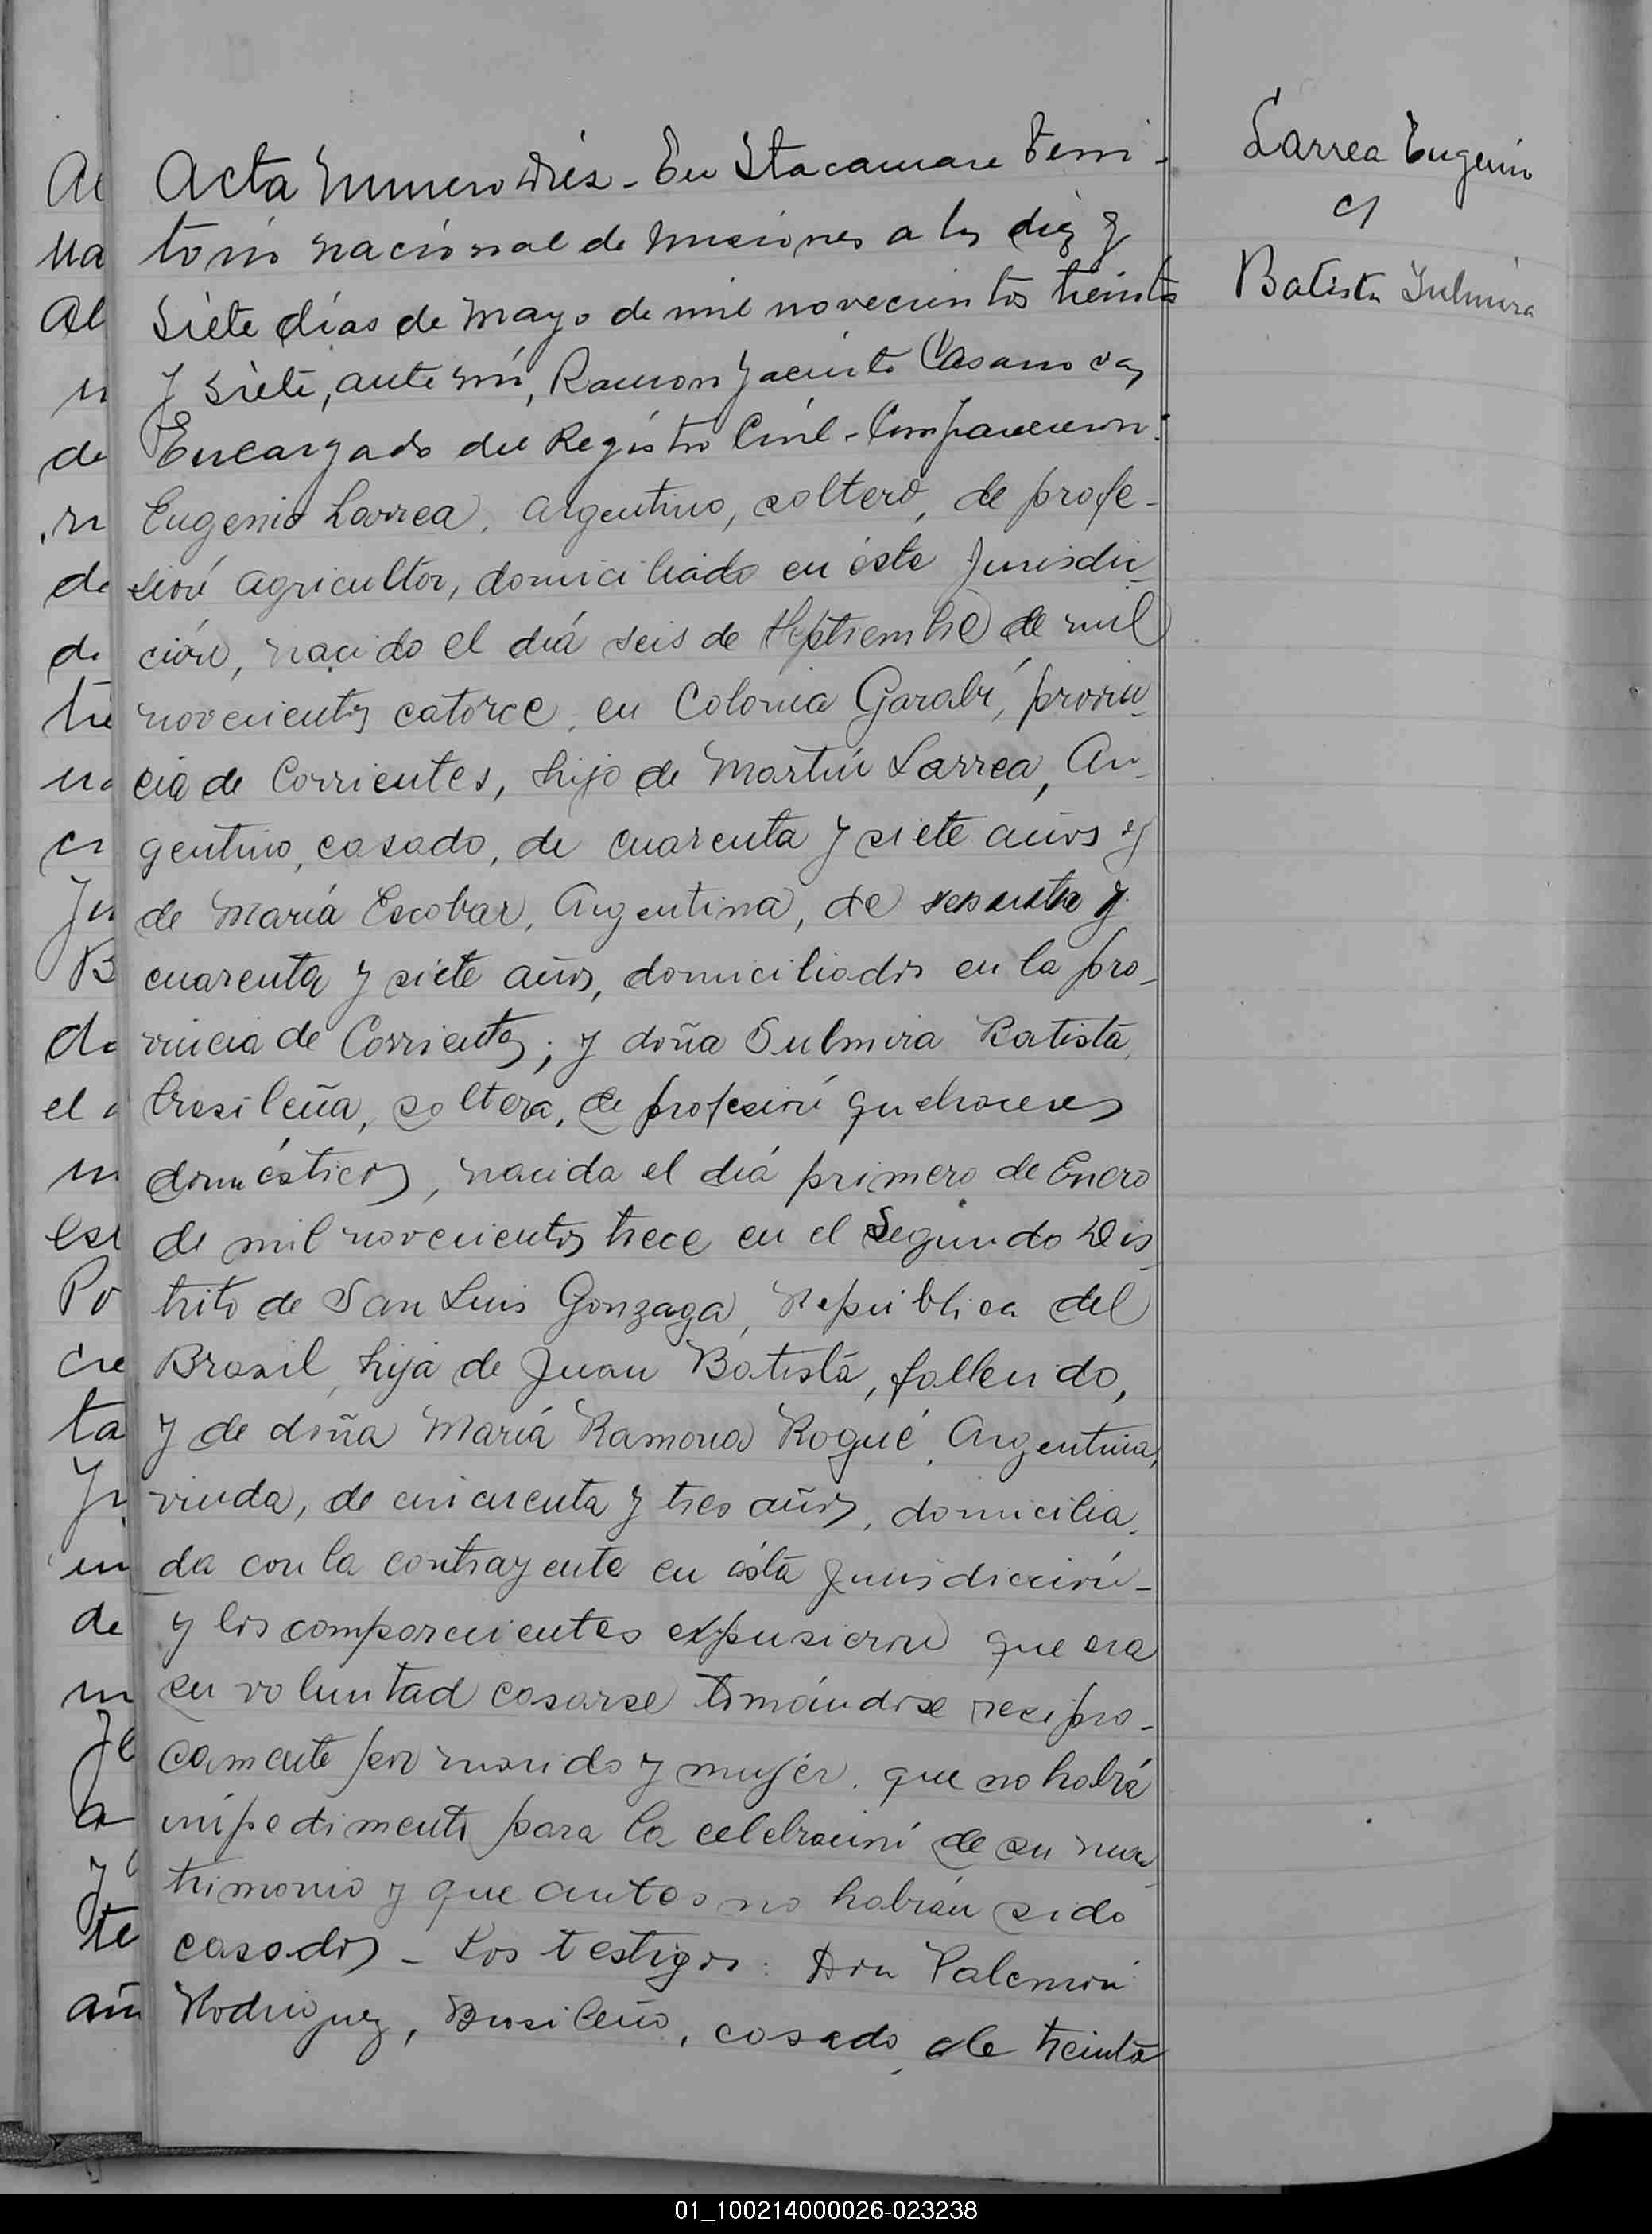 Acta Numero Diés - En Itacaruare Terri-
torio nacional de Misiones a los diez y
siete días de Mayo de mil novecientos treinta
y siete, ante mí, Ramon Jacinto Casanova,
Encargado del Registro Civil - Comparecieron:
Eugenio Larrea, Argentino, soltero, de profe-
sión agricultor, domiciliado en ésta Jurisdic-
ción, nacido el día seis de Septiembre de mil
novecientos catorce, en Colonia Garabí, provin-
cia de Corrientes, hijo de Martín Larrea, Ar-
gentino, casado, de cuarenta y siete años y
de María Escobar, Argentina, de y
cuarenta y siete años, domiciliados en la pro-
vincia de Corrientes; y doña Sulmira Batista,
brasileña, soltera, de profesión quehaceres
domésticos, nacida el día primero de Enero
de mil novecientos trece en el Segundo Dis-
trito de San Luis Gonzaga, República del
Brasil, hija de Juan Batista, fallecido,
y de doña María Ramona Rogué, Argentina,
viuda, de cincuenta y tres años, domicilia-
da con la contrayente en ésta Jurisdicción -
y los comparecientes expusieron que era
su voluntad casarse tomándose recipro-
camente por marido y mujer, que no había
impedimento para la celebración de su ma-
trimonio y que antes no habían sido
casados - Los testigos: Don Palemón
Rodriguez, Brasileño, casado, de treinta
Larrea Eugenio
c/
Batista Sulmira
01_100214000026-023238